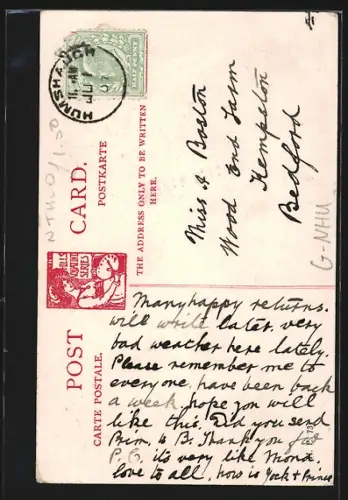 HUMSHAUGH
JU 1
HALF PENNY
POST CARD.
CARTE POSTALE. POSTKARTE
THE ADDRESS ONLY TO BE WRITTEN
HERE.
SERIES
Miss A Boston
Wood End Farm
Kempston
Bedford
G-NHU
NTHLD/1.50
Many happy returns.
will write later, very
bad weather here lately.
Please remember me to
everyone. have been back
a week, hope you will
like this. Did you send
Prim. to B. Thank you for
P.C. its very like Mona.
love to all, how is Jock & Prince